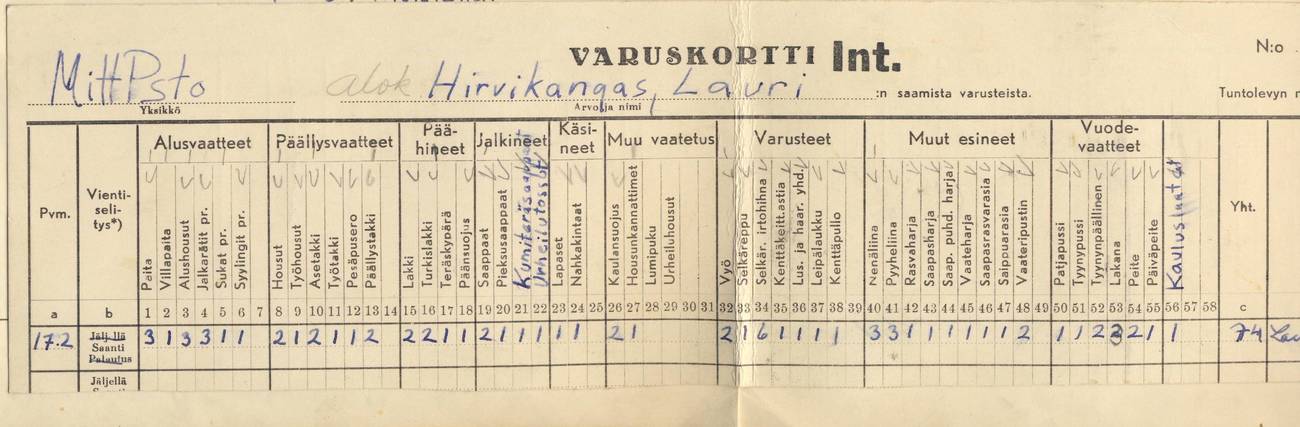 VARUSKORTTI Int.
N:o
MittPsto
alok Hirvikangas, Lauri :n saamista varusteista.
Tuntolevyn
Yksikkö
Arvo ja nimi
Pvm.
Vienti-
seli-
tys*)
Alusvaatteet
Päällysvaatteet
Pää-
hineet
Jalkineet
Käsi-
neet
Muu vaatetus
Varusteet
Muut esineet
Vuode-
vaatteet
Yht.
Paita
Villapaita
Alushousut
Jalkarätit pr.
Sukat pr.
Syylingit pr.
Housut
Työhousut
Asetakki
Työtakki
Pesäpusero
Päällystakki
Lakki
Turkislakki
Teräskypärä
Päänsuojus
Saappaat
Pieksusaappaat
Kumiteräsaappaat
Urheilutossut
Lapaset
Nahkakintaat
Kaulansuojus
Housunkannattimet
Lumipuku
Urheiluhousut
Vyö
Selkäreppu
Selkär. irtohihna
Kenttäkeitt.astia
Lus. ja haar. yhd.
Leipälaukku
Kenttäpullo
Nenäliina
Pyyheliina
Rasvaharja
Saapasharja
Saap. puhd. harja
Vaateharja
Saapasrasvarasia
Saippuarasia
Vaateripustin
Patjapussi
Tyynypussi
Tyynynpäällinen
Lakana
Peite
Päiväpeite
Kauluslaatat
a b 1 2 3 4 5 6 7 8 9 10 11 12 13 14 15 16 17 18 19 20 21 22 23 24 25 26 27 28 29 30 31 32 33 34 35 36 37 38 39 40 41 42 43 44 45 46 47 48 49 50 51 52 53 54 55 56 57 58 c
Jäljellä
17.2 Saanti 3 1 3 3 1 1 2 1 2 1 1 2 2 2 1 1 2 1 1 1 1 1 2 1 2 1 6 1 1 1 1 3 3 1 1 1 1 1 1 2 1 1 2 2 2 1 1 74
Palautus
Jäljellä